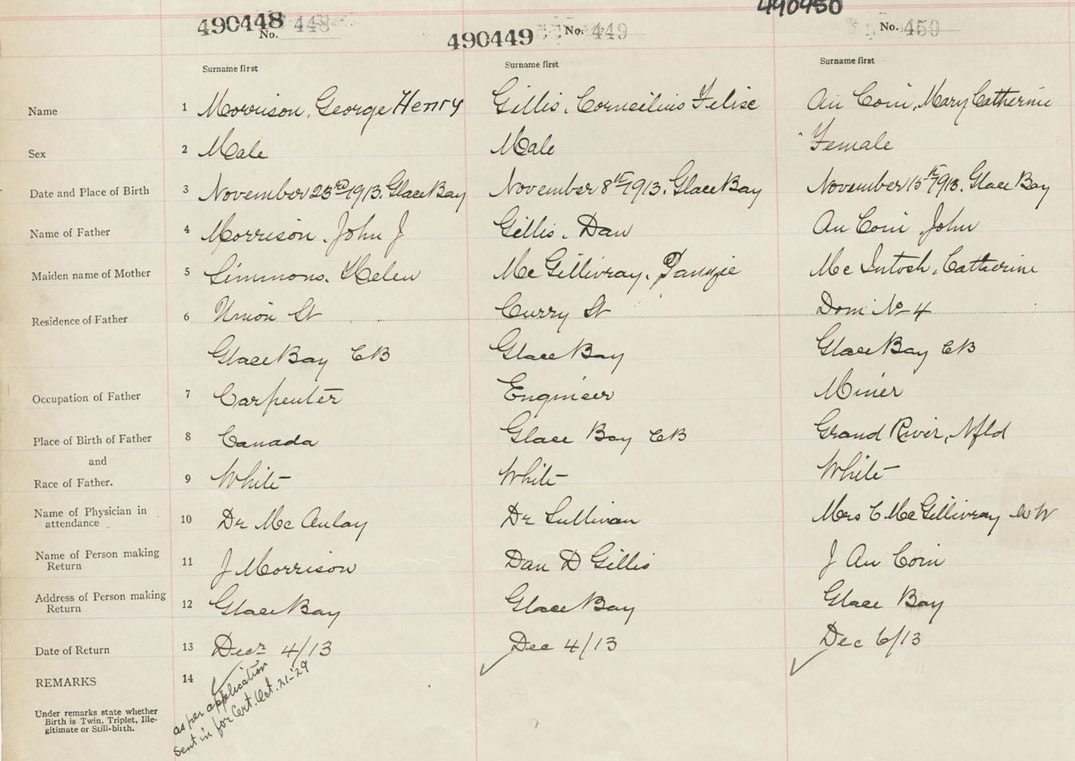 490448 No. 448
490449 No. 449
490450 No. 450
Surname first Surname first Surname first
Name 1 Morrison, George Henry Gillis, Corneilius Felise Au Coin, Mary Catherine
Sex 2 Male Male Female
Date and Place of Birth 3 November 23rd 1913. Glace Bay November 8th 1913. Glace Bay November 15th 1913. Glace Bay
Name of Father 4 Morrison, John J Gillis, Dan Au Coin John
Maiden name of Mother 5 Simmons, Helen McGillivray, Mc Intosh, Catherine
Residence of Father 6 Union St Curry St Dom No 4
Glace Bay CB Glace Bay Glace Bay CB
Occupation of Father 7 Carpenter Engineer Miner
Place of Birth of Father 8 Canada Glace Bay CB Grand River, Nfld
and
Race of Father. 9 White White White
Name of Physician in attendance 10 Dr McAulay Dr Sullivan Mrs C McGillivray
Name of Person making Return 11 J Morrison Dan D Gillis J Au Coin
Address of Person making Return 12 Glace Bay Glace Bay Glace Bay
Date of Return 13 Decr 4/13 Dec 4/13 Dec 6/13
REMARKS 14
Under remarks state whether
Birth is Twin, Triplet, Ille-
gitimate or Still-birth.
as per application
sent in for Cert. Oct. 21-29